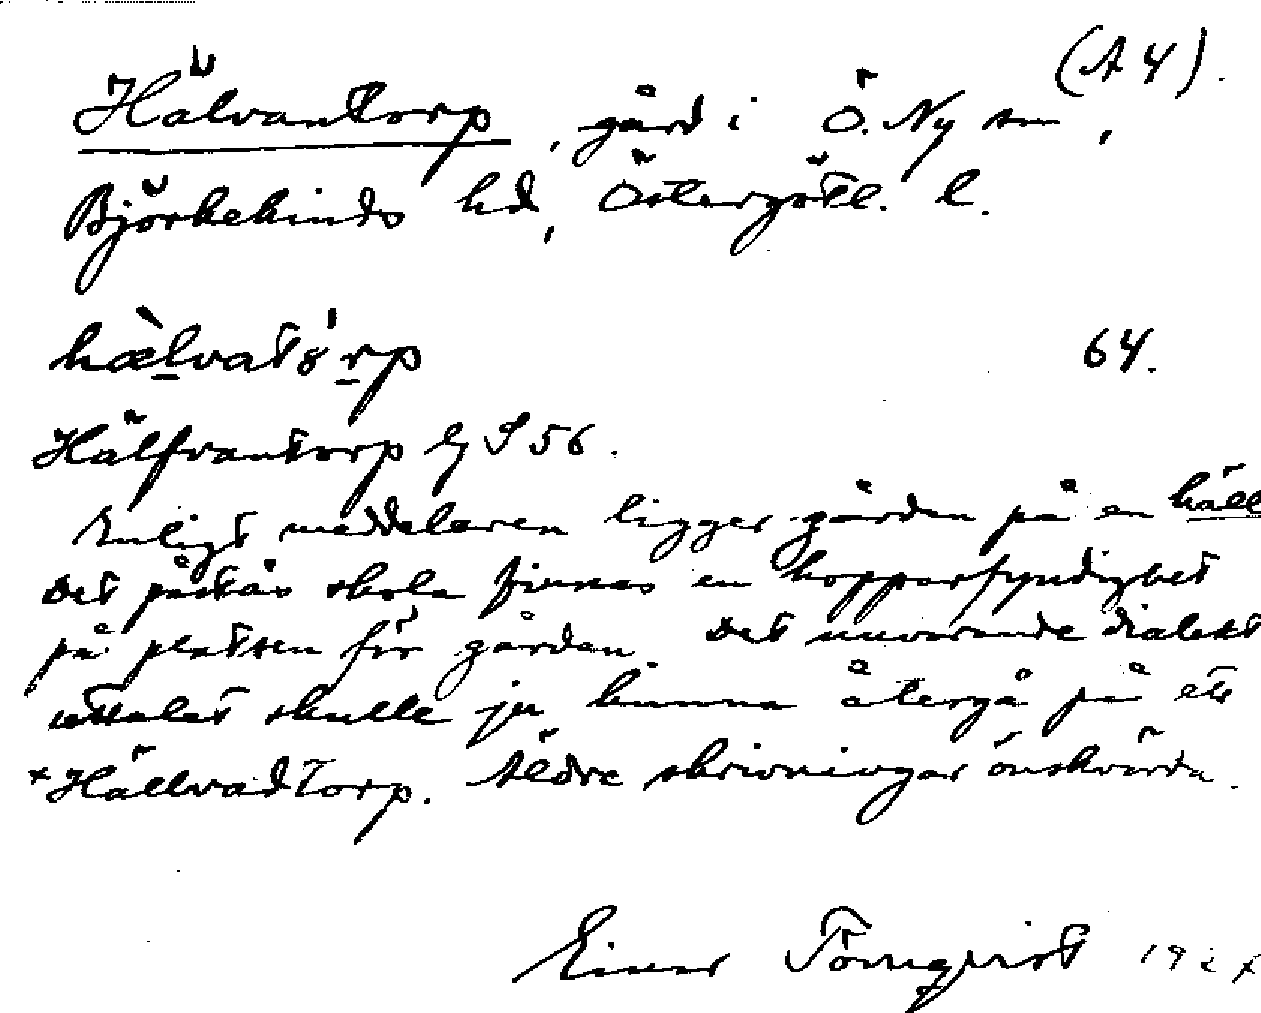 (A 4).
Hälvantorp, gård i Ö. Ny sn,
Björkekinds hd, Östergötl. l.
hælvatórp 64.
Hälfvantorp Ej S 56.
Enligt meddelaren ligger gården på en häll
Det påstås skola finnas en kopparfyndighet
på platsen för gården. Det nuvarande dialekt
uttalet skulle ju kunna återgå på ett
*Hällvadtorp. Äldre skrivningar önskvärda.
Einar Törnqvist